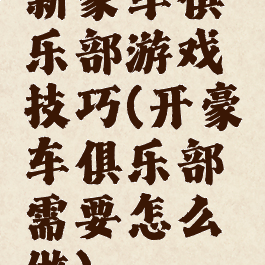 新豪车俱
乐部游戏
技巧(开豪
车俱乐部
需要怎么
做)